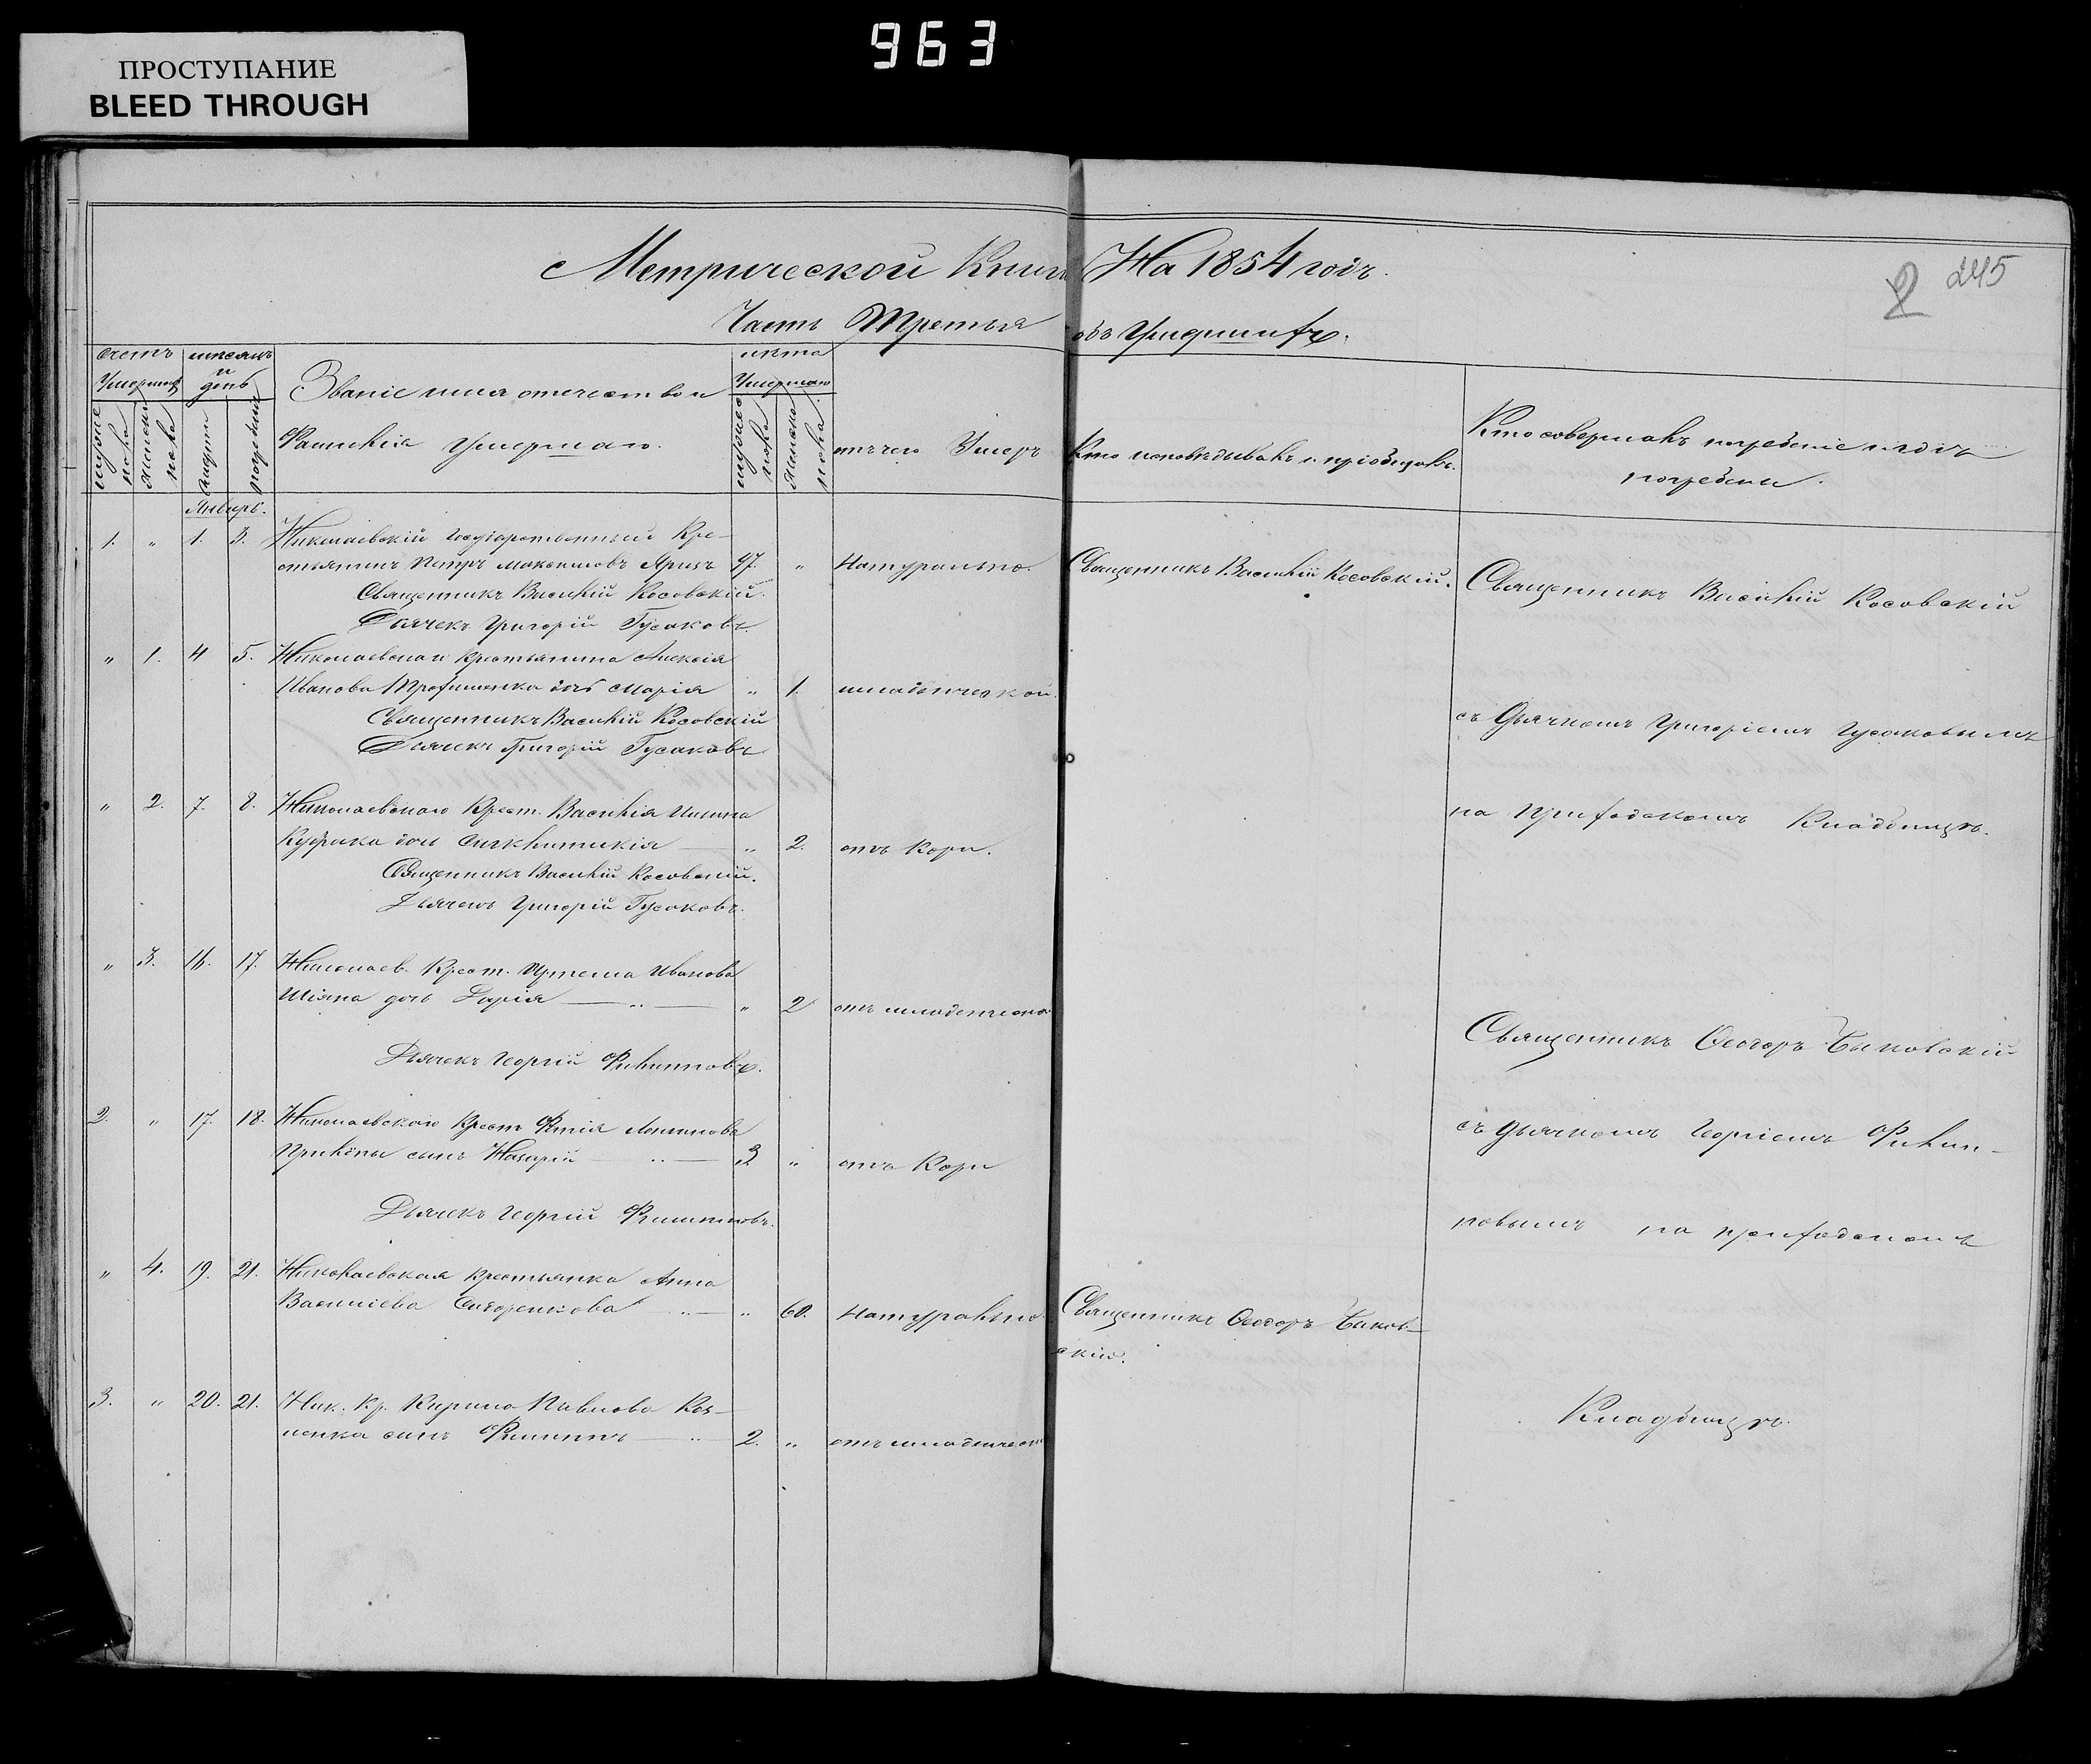 963
ПРОСТУПАНИЕ
BLEED THROUGH
Метрической Книги На 1854 годъ.
245
2
Часть Третья объ Умершихъ.
счетъ Умершихъ
мужеска пола
женска пола
месяцъ и день
смерти
погребения
Званіе имя отечество и
Фамилія Умершаго.
лѣта Умершаго
мужеска пола
женска пола
отъ чего Умеръ
Кто исповѣдывалъ и пріобщалъ.
Кто совершалъ погребеніе и гдѣ
погребены.
Январь.
1. " 1. 3. Николаевскій Государственный Кре-
стьянинъ Петръ Максимовъ 97. " Натурально. Священникъ Василій Косовскій. Священникъ Василій Косовскій
Священникъ Василій Косовскій.
Дьячекъ Григорій Гусаковъ.
" 1. 4 5. Николаевскаго Крестьянина Алексія
Иванова Трофименка дочь Марія " 1. младенческой.
Священникъ Василій Косовскій
Дьячекъ Григорій Гусаковъ
съ Дьячкомъ Григоріемъ Гусаковымъ
" 2. 7. 8. Николаевскаго Крест. Василія
дочь " 2. отъ Кори.
на Приходскомъ Кладбищѣ.
Священникъ Василій Косовскій.
Дьячекъ Григорій Гусаковъ.
" 3. 16. 17. Николаев. Крест. Артема Иванова
Шіяна дочь Дарія " 2 отъ младенческой
Священникъ Феодоръ Быковскій
Дьячекъ Георгій Филиповъ.
2. " 17. 18. Николаевскаго Крест
сынъ Назарій 3. " отъ Кори
съ Дьячкомъ Георгіемъ Филип-
Дьячекъ Георгій Филиповъ.
повымъ на приходскомъ
" 4. 19. 21. Николаевская крестьянка Анна
Василіева Сидоренкова " 60. Натурально Священникъ Феодоръ Быков-
скій.
3. " 20. 21. Ник. Кр. Кирила Павлова Коз-
ленка сынъ Филиппъ 2. " отъ младенческ
Кладбищѣ.